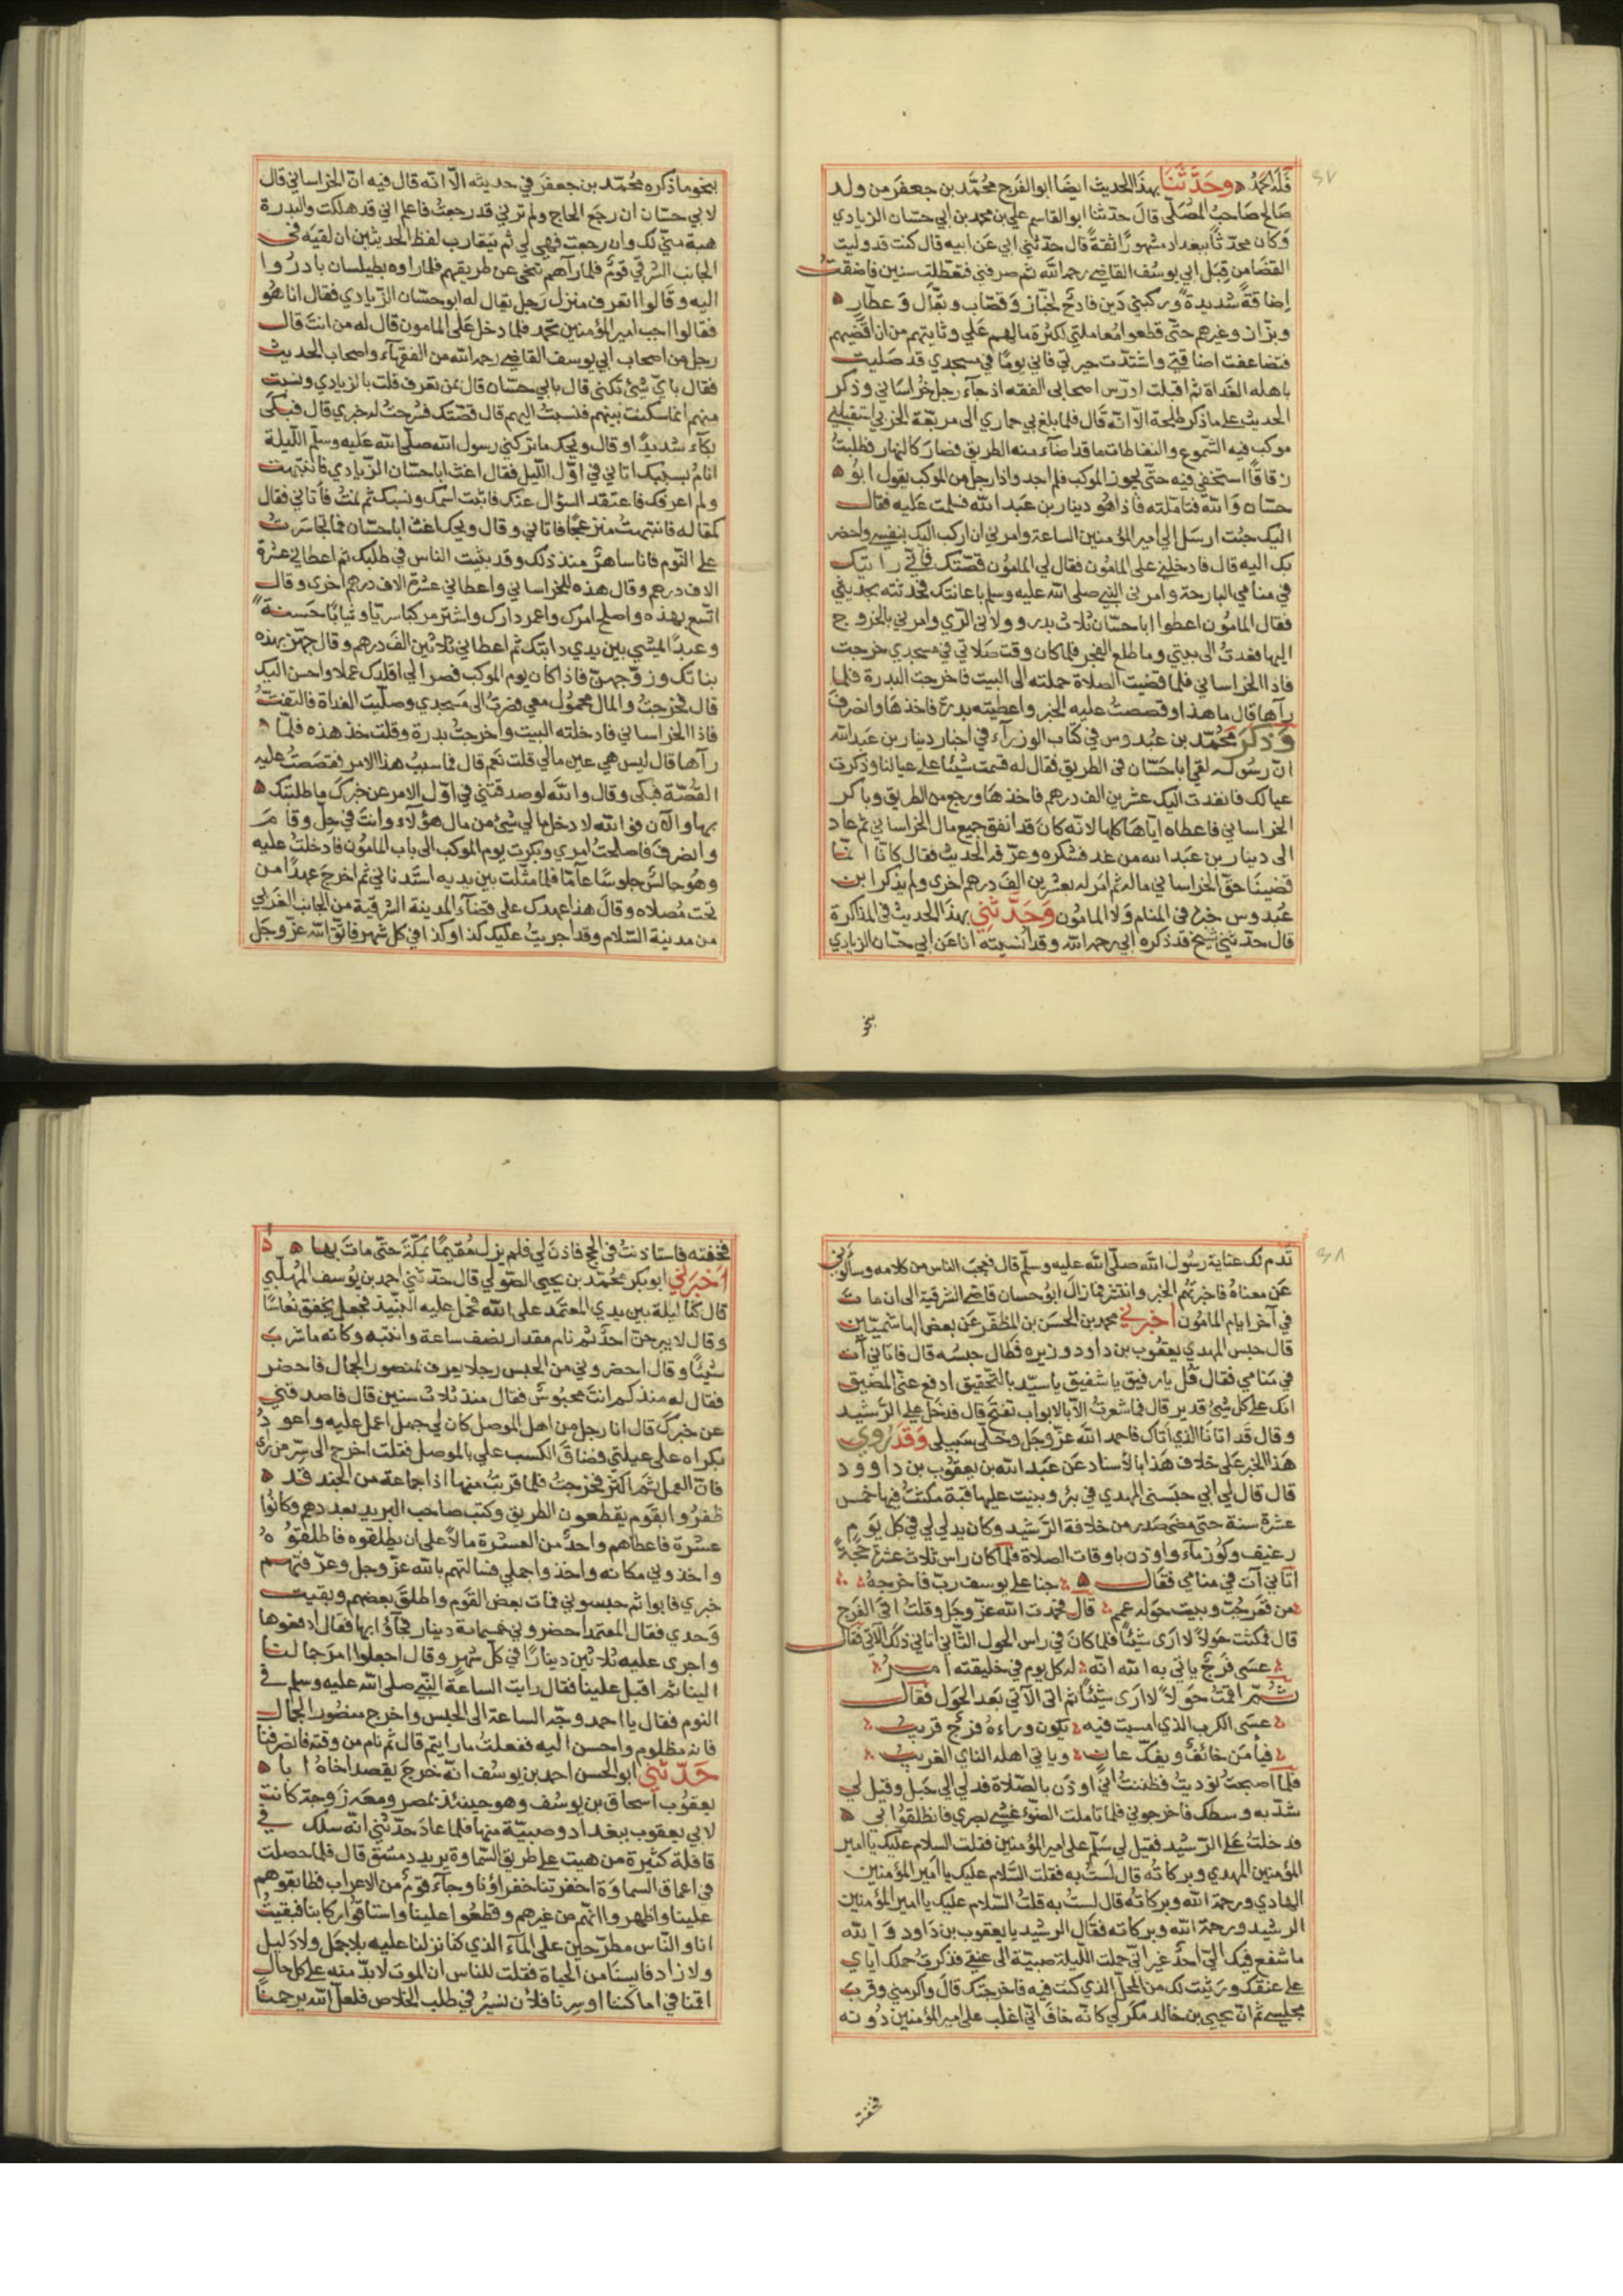 فلله الحمد وحدثنا بهذا الحديث ايضا ابو الفرج محمد بن جعفر من ولد
صالح صاحب المصلى قال حدثنا ابو القاسم علي بن محمد بن ابي حسان الزيادي
وكان محدثا ببغداد مشهورا ثقة قال حدثني ابي عن ابيه قال كنت قد وليت
القضا من قبل ابي يوسف القاضي رحمه الله ثم صرفني فتعطلت سنين فاضقت
إضاقة شديدة وركبني دين فادح لخباز وقصاب وبقال وعطار
وبزاز وغيرهم حتى قطعوا معاملتي لكثرة مالهم علي وثايتهم من ان اقضيهم
فتضاعفت اضاقتي واشتدت حيرتي فاني يوما في مسجدي قد صليت
باهله الغداة ثم اقبلت ادرس اصحابي الفقه اذ جآء رجل خراساني وذكر
الحديث على ما ذكر طلحة الا انه قال فلما بلغ بي حماري الى مربعة الخربي استقبلني
موكب فيه الشموع والنفاطات ما قد اضآء منه الطريق فصار كالنهار فطلبت
زقاقا استخفي فيه حتى يجوز الموكب فلم اجد واذا رجل من الموكب يقول ابو
حسان والله فتاملته فاذا هو دينار بن عبد الله فسلمت عليه فقال
اليك جئت ارسل الي امير المؤمنين الساعة وامرني ان اركب اليك بنفسي واحضر
بك اليه قال فادخلني على المامون فقال لي المامون قصتك فاني رايتك
في منامي البارحة وامرني النبي صلى الله عليه وسلم باعانتك فحدثته بحديثي
فقال المامون اعطوا ابا حسان ثلاث بدر وولاني الري وامرني بالخروج
اليها فعدت الى بيتي وما طلع الفجر فلما كان وقت صلاتي في مسجدي خرجت
فاذا الخراساني فلما قضيت الصلاة حملته الى البيت فاخرجت البدرة فلما
رآها قال ما هذا وقصصت عليه الخبر واعطيته بدرة فاخذها وانصرف
وذكر محمد بن عبدوس في كتاب الوزرآء في اخبار دينار بن عبد الله
ان رسوله لقي ابا حسان في الطريق فقال له قسمت شيئا على عيالنا وذكرت
عيالك فانفذت اليك عشرين الف درهم فاخذها ورجع من الطريق وباكر
الخراساني فاعطاه اياها كلها لانه كان قد انفق جميع مال الخراساني ثم عاد
الى دينار بن عبد الله من غد فشكره وعرفه الحديث فقال كانا انما
قضينا حق الخراساني ماله ثم امر له بعشرين الف درهم اخرى ولم يذكر ابن
عبدوس خبره في المنام ولا المامون وحدثني بهذا الحديث في المذاكرة
قال حدثني شيخ قد ذكره ابي رحمه الله وقد انسيته انا عن ابي حسان الزيادي
بنحو
بنحو ما ذكره محمد بن جعفر في حديثه الا انه قال فيه ان الخراساني قال
لابي حسان ان رجع الحاج ولم ترني قد رجعت فاعلم اني قد هلكت والبدرة
هبة مني لك وان رجعت فهي لي ثم يتقارب لفظ الحديثين ان لقيه في
الجانب الشرقي قوم فلما رآهم تنحى عن طريقهم فلما راوه بطيلسان بادروا
اليه وقالوا اتعرف منزل رجل يقال له ابو حسان الزيادي فقال انا هو
فقالوا اجب امير المؤمنين محمد فلما دخل على المامون قال له من انت قال
رجل من اصحاب ابي يوسف القاضي رحمه الله من الفقهآء واصحاب الحديث
فقال باي شئ تكنى قال بابي حسان قال بمن تعرف قلت بالزيادي ولست
منهم انما سكنت بينهم فنسبت اليهم قال قصتك فشرحت له خبري قال فبكى
بكآء شديدا وقال ويحك ما تركني رسول الله صلى الله عليه وسلم الليلة
انام بسببك اتاني في اول الليل فقال اغث ابا حسان الزيادي فانتبهت
ولم اعرفك فاعتقد السؤال عنك فاثبت اسمك ونسبك ثم نمت فأتاني فقال
كمقاله فانتبهت منزعجا فاتاني وقال ويحك اغث ابا حسان فما تجاسرت
على النوم فانا ساهر منذ ذلك وقد بثثت الناس في طلبك ثم اعطاني عشرة
الاف درهم وقال هذه للخراساني واعطاني عشرة الاف درهم اخرى وقال
اتسع بهذه واصلح امرك واعمر دارك واشتر مركبا سريا وثيابا حسنة
وعبدا يمشي بين يدي دابتك ثم اعطاني ثلاثين الف درهم وقال جهز بهذه
بناتك وزوجهن فاذا كان يوم الموكب فصر الي اقلدك عملا واحسن اليك
قال فخرجت والمال محمول معي فصرت الى مسجدي وصليت الغداة فالتفت
فاذا الخراساني فادخلته البيت واخرجت بدرة وقلت خذ هذه فلما
رآها قال ليس هي عين مالي قلت نعم قال فما سبب هذا الامر فقصصت عليه
القصة فبكى وقال والله لو صدقتني في اول الامر عن خبرك ما طلبتك
بها والآن فوالله لا دخل مالي شئ من مال هؤلآء وانت في حل وقام
وانصرف فاصلحت امري وبكرت يوم الموكب الى باب المامون فادخلت عليه
وهو جالس جلوسا عآما فلما مثلت بين يديه استدناني ثم اخرج عهدا من
تحت مصلاه وقال هذا عهدك على قضآء المدينة الشرقية من الجانب الغربي
من مدينة السلام وقد اجريت عليك كذا وكذا في كل شهر فاتق الله عز وجل
تدم لك عناية رسول الله صلى الله عليه وسلم قال فعجب الناس من كلامه وسألوني
عن معناه فاخبرتهم الخبر وانتشر فما زال ابو حسان قاضي الشرقية الى ان مات
في آخر ايام المامون اخبرني محمد بن الحسن بن المظفر عن بعض الهاشميين
قال حبس المهدي يعقوب بن داود وزيره فطال حبسه قال فاتاني آت
في منامي فقال قل يا رفيق يا شفيق يا سيد بالتحقيق ادفع عني المضيق
انك على كل شئ قدير قال فما شعرت الا بالابواب تفتح قال فدخل على الرشيد
وقال قد اتانا الذي اتاك فاحمد الله عز وجل وخلى سبيلي وقد روي
هذا الخبر على خلاف هذا بالأسناد عن عبد الله بن يعقوب بن داوود
قال قال لي ابي حبسني المهدي في بئر وبنيت عليها قبة مكثت فيها خمس
عشرة سنة حتى مضى صدر من خلافة الرشيد وكان يدلي لي في كل يوم
رغيف وكوز مآء واوذن باوقات الصلاة فلما كان راس ثلاث عشرة حجة
اتاني آت في منامي فقال حنا على يوسف رب فاخرجه
من قعر جب وبيت حوله عمم قال فحمدت الله عز وجل وقلت اتى الفرج
قال فمكثت حولا لا ارى شيئا فلما كان في راس الحول الثاني اتاني ذلك الآتي فقال
عسى فرج ياتي به الله انه له كل يوم في خليقته امر
ثم اقمت حولا لا ارى شيئا ثم اتى الآتي بعد الحول فقال
عسى الكرب الذي امسيت فيه يكون وراءه فرج قريب
فيأمن خائف ويفك عان وياتي اهله الناي الغريب
فلما اصبحت نوديت فظننت اني اوذن بالصلاة فدلي الي حبل وقيل لي
شد به وسطك فاخرجوني فلما تاملت الضوء غشي بصري فانطلقوا بي
فدخلت على الرشيد فقيل لي سلم على امير المؤمنين فقلت السلام عليك يا امير
المؤمنين المهدي وبركاته قال لست به فقلت السلام عليك يا امير المؤمنين
الهادي ورحمة الله وبركاته قال لست به قلت السلام عليك يا امير المؤمنين
الرشيد ورحمة الله وبركاته فقال الرشيد يا يعقوب بن داود والله
ما شفع فيك الي احد غير اني حملت الليلة صبية الى عنقي فذكرت حملك اياي
على عنقك ورثيت لك من المحل الذي كنت فيه فاخرجتك قال واكرمني وقرب
مجلسي ثم ان يحيى بن خالد مكر لي كانه خاف اني اغلب على امير المؤمنين دونه
فخفته
فخفته فاستاذنت في الحج فاذن لي فلم يزل مقيما بمكة حتى مات بها
اخبرني ابو بكر محمد بن يحيى الصولي قال حدثني احمد بن يوسف المهلبي
قال كنا ليلة بين يدي المعتمد على الله فحمل عليه النبيذ فجعل يخفق نعاسا
وقال لا يبرحن احد ثم نام مقدار نصف ساعة وانتبه وكانه ما شرب
شيئا وقال احضروني من الحبس رجلا يعرف بمنصور الجمال فاحضر
فقال له منذ كم انت محبوس فقال منذ ثلاث سنين قال فاصدقني
عن خبرك قال انا رجل من اهل الموصل كان لي جمل اعمل عليه واعود
بكراه على عيلتي فضاق الكسب علي بالموصل فقلت اخرج الى سر من رى
فان العمل ثم اكثر فخرجت فلما قربت منها اذا جماعة من الجند قد
ظفروا بقوم يقطعون الطريق وكتب صاحب البريد بعددهم وكانوا
عشرة فاعطاهم واحد من العشرة مالا على ان يطلقوه فاطلقوه
واخذوني مكانه واخذوا جملي فسالتهم بالله عز وجل وعرفتهم
خبري فابوا ثم حبسوني فمات بعض القوم واطلق بعضهم وبقيت
وحدي فقال المعتمد احضروني خمسمائة دينار فجآؤا بها فقال ادفعوها
واجرى عليه ثلاثين دينارا في كل شهر وقال اجعلوا امر جمالنا
الينا ثم اقبل علينا فقال رايت الساعة النبي صلى الله عليه وسلم في
النوم فقال يا احمد وجه الساعة الى الحبس واخرج منصور الجمال
فانه مظلوم واحسن اليه ففعلت ما رايتم قال ثم نام من وقته فانصرفنا
حدثني ابو الحسن احمد بن يوسف انه خرج يقصد اخاه ابا
يعقوب اسحاق بن يوسف وهو حينئذ بمصر ومعه زوجة كانت
لابي يعقوب ببغداد وصبية منها فلما عاد حدثني انه سلك في
قافلة كثيرة من هيت على طريق السماوة يريد دمشق قال فلما حصلت
في اعماق السماوة اخفرتنا خفراؤنا وجآء قوم من الاعراب فظابقوهم
علينا واظهروا انهم من غيرهم وقطعوا علينا واستاقوا ركابنا فبقيت
انا والناس مطرحين على المآء الذي كنا نزلنا عليه بلا جمل ولا دليل
ولا زاد فايسنا من الحياة فقلت للناس ان الموت لا بد منه على كل حال
اقمنا في اماكننا او سرنا فلأن نسير في طلب الخلاص فلعل الله يرحمنا